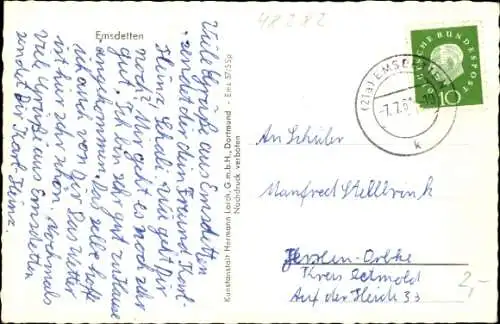 48282
Emsdetten
Viele Grüße aus Emsdetten
sendet dir dein Freund Karl-
Heinz. Wie geht Dir
noch? Mir geht es noch sehr
gut. Ich bin sehr gut zuhause
angekommen. Das selbe hoffe
ich auch von Dir. Das Wetter
ist hier sehr schön. Nochmals
viele Grüße aus Emsdetten
sendet Dir Karl Heinz.
Kunstanstalt Hermann Lorch, G.m.b.H., Dortmund - Ems 37/55p
Nachdruck verboten
DEUTSCHE BUNDESPOST
10
(21a) EMSDETTEN
-7.7.61
k
An Schüler
Manfred Stellbrink
Kreis Detmold
Auf der Heide 33
2,-